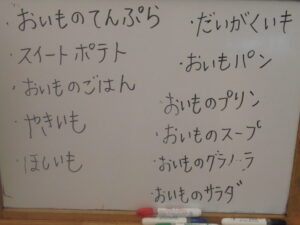 ・おいものてんぷら
・スイートポテト
・おいものごはん
・やきいも
・ほしいも
・だいがくいも
・おいもパン
・おいものプリン
・おいものスープ
・おいものグラノーラ
・おいものサラダ